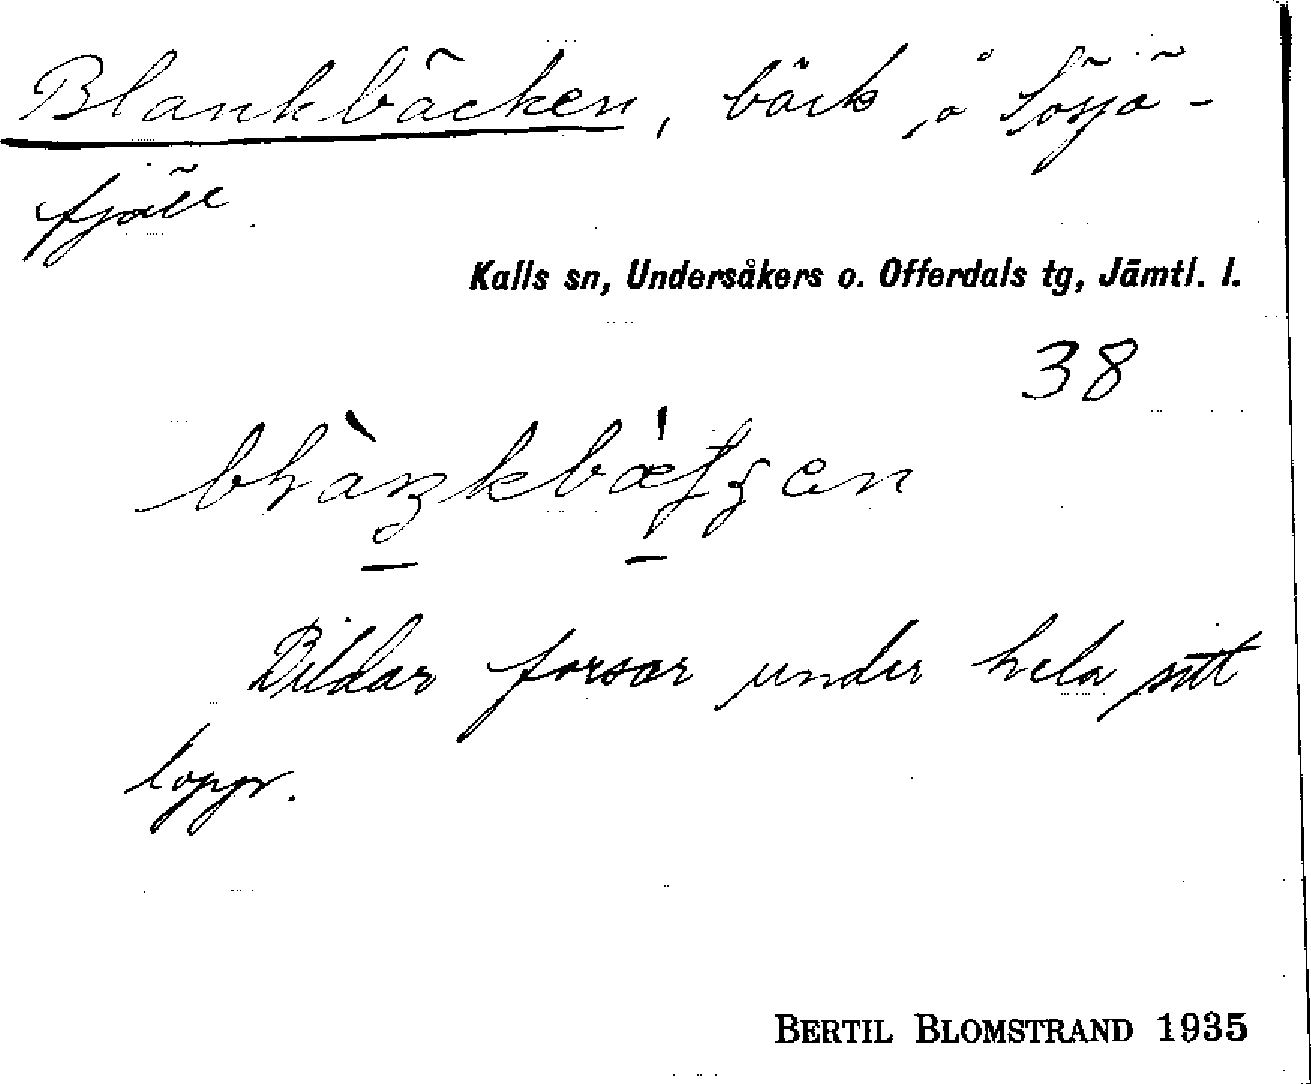 Blankbäcken, bäck å Sösjö-
fjäll.
Kalls sn, Undersåkers o. Offerdals tg, Jämtl. l.
38
Bildar forsar under hela sitt
lopp.
BERTIL BLOMSTRAND 1935